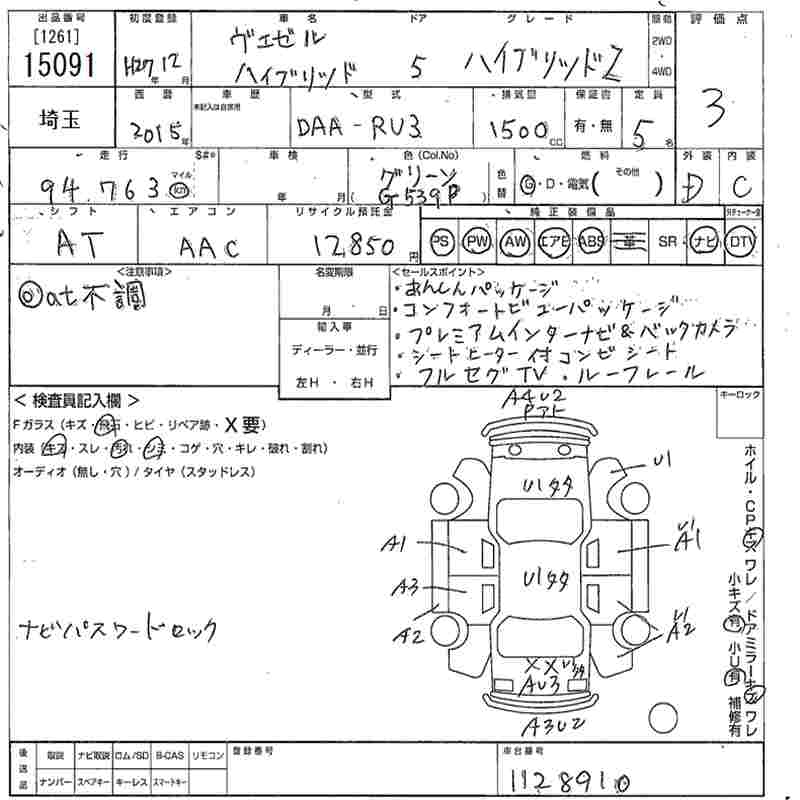 出品番号 初度登録 車名 ドア グレード 駆動 評価点
[1261]
15091 H27年12月 ヴェゼル ハイブリッド 5 ハイブリッドZ 2WD・4WD 3
埼玉 西暦 車歴 型式 排気量 保証書 定員
未記入は自家用
2015年 DAA-RU3 1500CC 有・無 5名
走行 S#* 車検 色(Col.No) 燃料 外装 内装
94,763 マイル km 年 月 グリーン (G539P) 色替 G・D・電気( その他 ) D C
シフト エアコン リサイクル預託金 純正装備品
AT AAC 12,850円 PS PW AW エアB ABS 革 SR ナビ DTV
<注意事項> 名変期限 <セールスポイント>
◎at不調
月 日
輸入車
ディーラー・並行
左H ・ 右H
・あんしんパッケージ
・コンフォートビューパッケージ
・プレミアムインターナビ&バックカメラ
・シートヒーター付コンビシート
・フルセグTV ・ルーフレール
<検査員記入欄>
Fガラス(キズ・飛石・ヒビ・リペア跡・X要)
内装(キズ・スレ・汚れ・シミ・コゲ・穴・キレ・破れ・割れ)
オーディオ(無し・穴)/タイヤ(スタッドレス)
キーロック
A4U2
Pアト
U1
U1タタ
A1
U1
A1
A3
U1タタ
A2
U1
A2
XXU1タタ
AU3
A3U2
ナビパスワードロック
ホイル・CPキズワレ/ドアミラーキズワレ
小キズ有 小U有 補修有
後送品 取説 ナビ取説 ロム/SD B-CAS リモコン 登録番号 車台番号
ナンバー スペアキー キーレス スマートキー
1128910